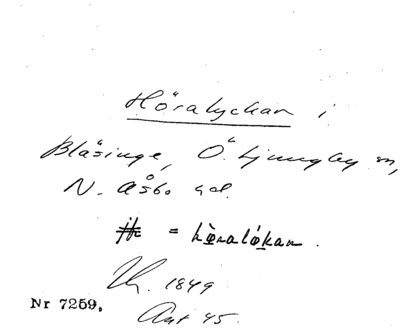 Höralyckan i
Blåsinge, Ö. Ljungby sn,
N. Åsbo hd.
= hö̀ralók̬an.
1849
Nr 7259.
Ant 45.